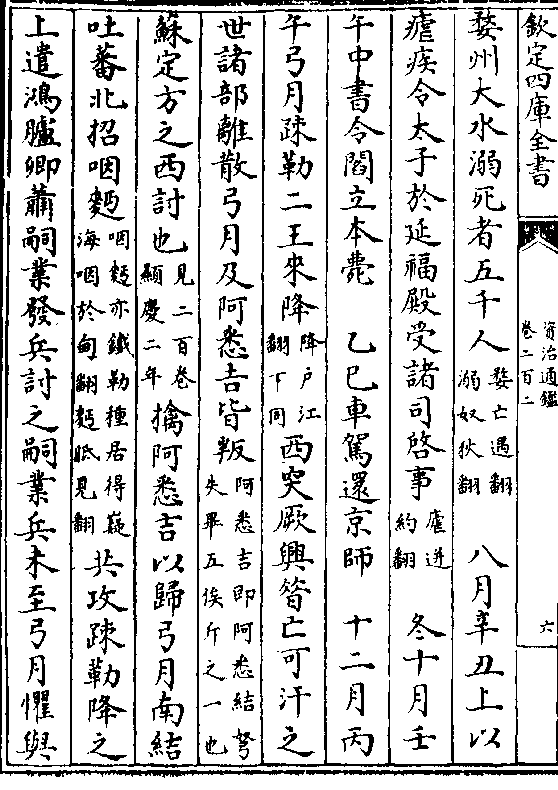 欽定四庫全書
資治通鑑
卷二百二
六
婺州大水溺死者五千人婺亡遇翻溺奴狄翻八月辛丑上以
瘧疾令太子於延福殿受諸司啓事瘧逆約翻冬十月壬
午中書令閻立本薨乙巳車駕還京師十二月丙
午弓月疎勒二王來降降戸江翻下同西突厥興昔亡可汗之
世諸部離散弓月及阿悉吉皆叛阿悉吉即阿悉結弩失畢五俟斤之一也
蘇定方之西討也見二百卷顯慶二年擒阿悉吉以歸弓月南結
吐蕃北招咽麪咽麪亦鐵勒種居得嶷海咽於甸翻麪眠見翻共攻踈勒降之
上遣鴻臚卿蕭嗣業發兵討之嗣業兵未至弓月懼與